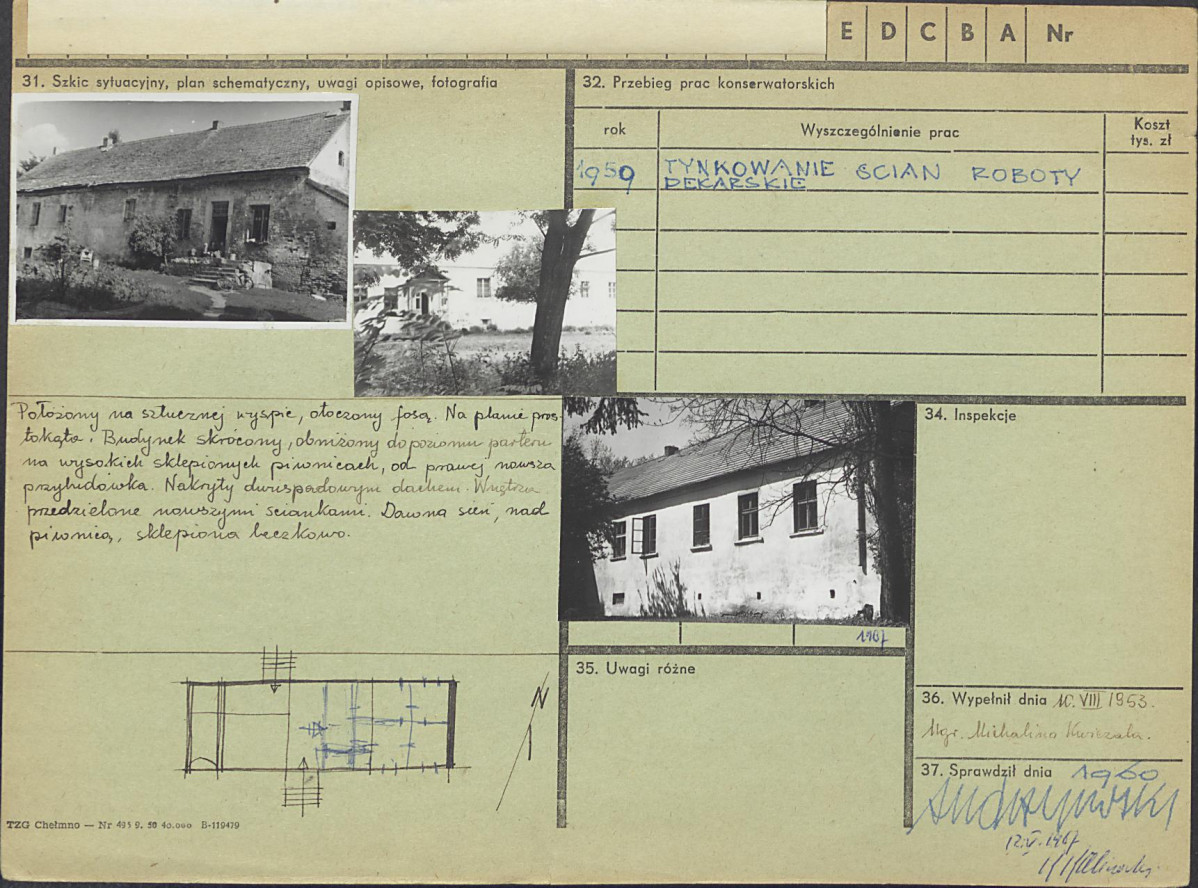 E D C B A Nr
31. Szkic sytuacyjny, plan schematyczny, uwagi opisowe, fotografia
32. Przebieg prac konserwatorskich
rok
Wyszczególnienie prac
Koszt
tys. zł
1959
TYNKOWANIE SCIAN ROBOTY
DEKARSKIE
Położony na sztucznej wyspie, otoczony fosą. Na planie pros-
tokąta. Budynek skrócony, obniżony do poziomu parteru
na wysokich sklepionych piwnicach, od prawej nowsza
przybudówka. Nakryty dwuspadowym dachem. Wnętrza
przedzielone nowszymi ściankami. Dawna sień, nad
piwnicą, sklepiona beczkowo.
1967
34. Inspekcje
35. Uwagi różne
36. Wypełnił dnia 10. VIII 1953.
Mgr. Michalina
37. Sprawdził dnia 1960
12.V.1967
N
TZG Chełmno — Nr 495 9. 50 40.000 B-119479